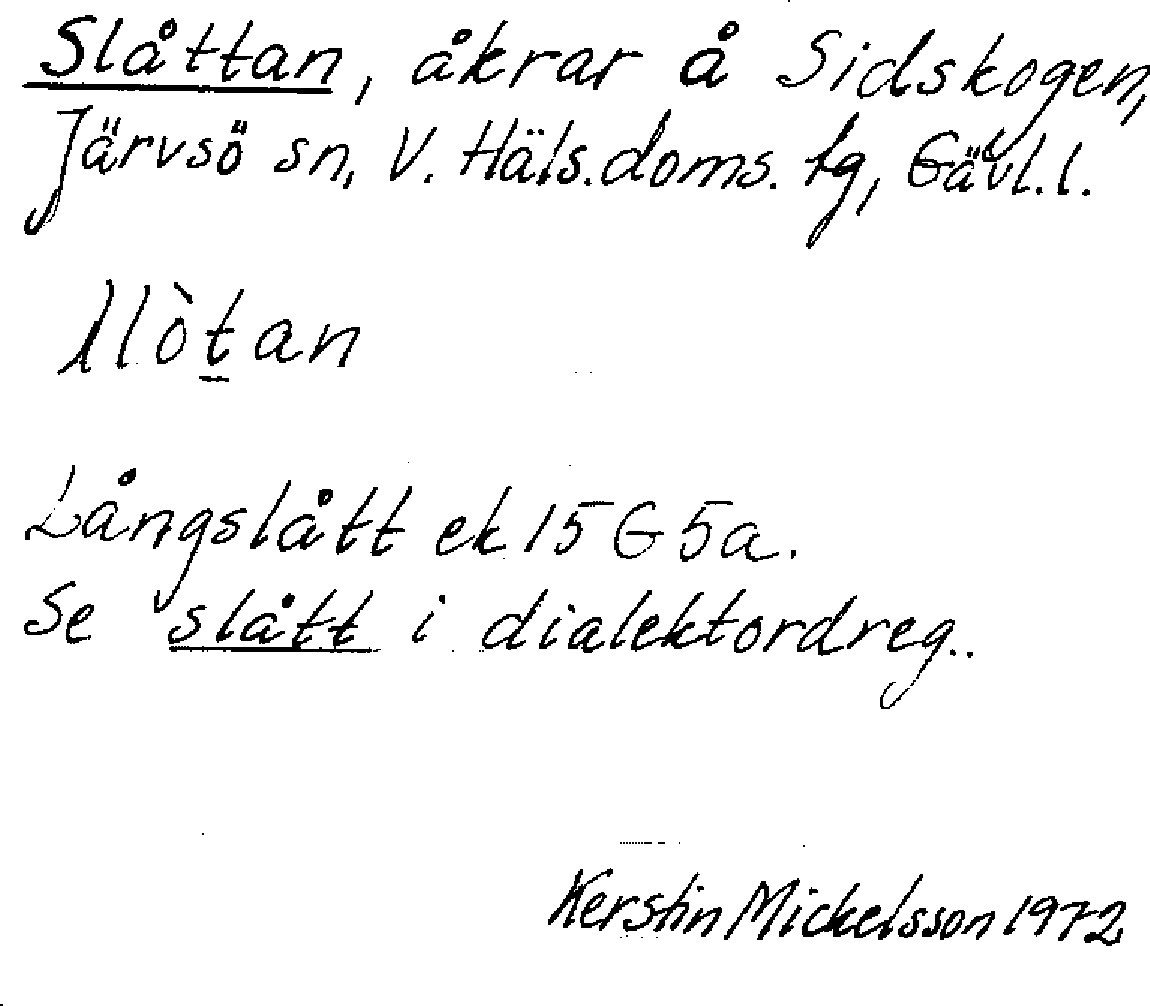 Slåttan, åkrar å Sidskogen,
Järvsö sn, V. Häls.doms. tg, Gävl.l.
Långslått ek 15 G 5a.
Se slått i dialektordreg..
Kerstin Mickelsson 1972